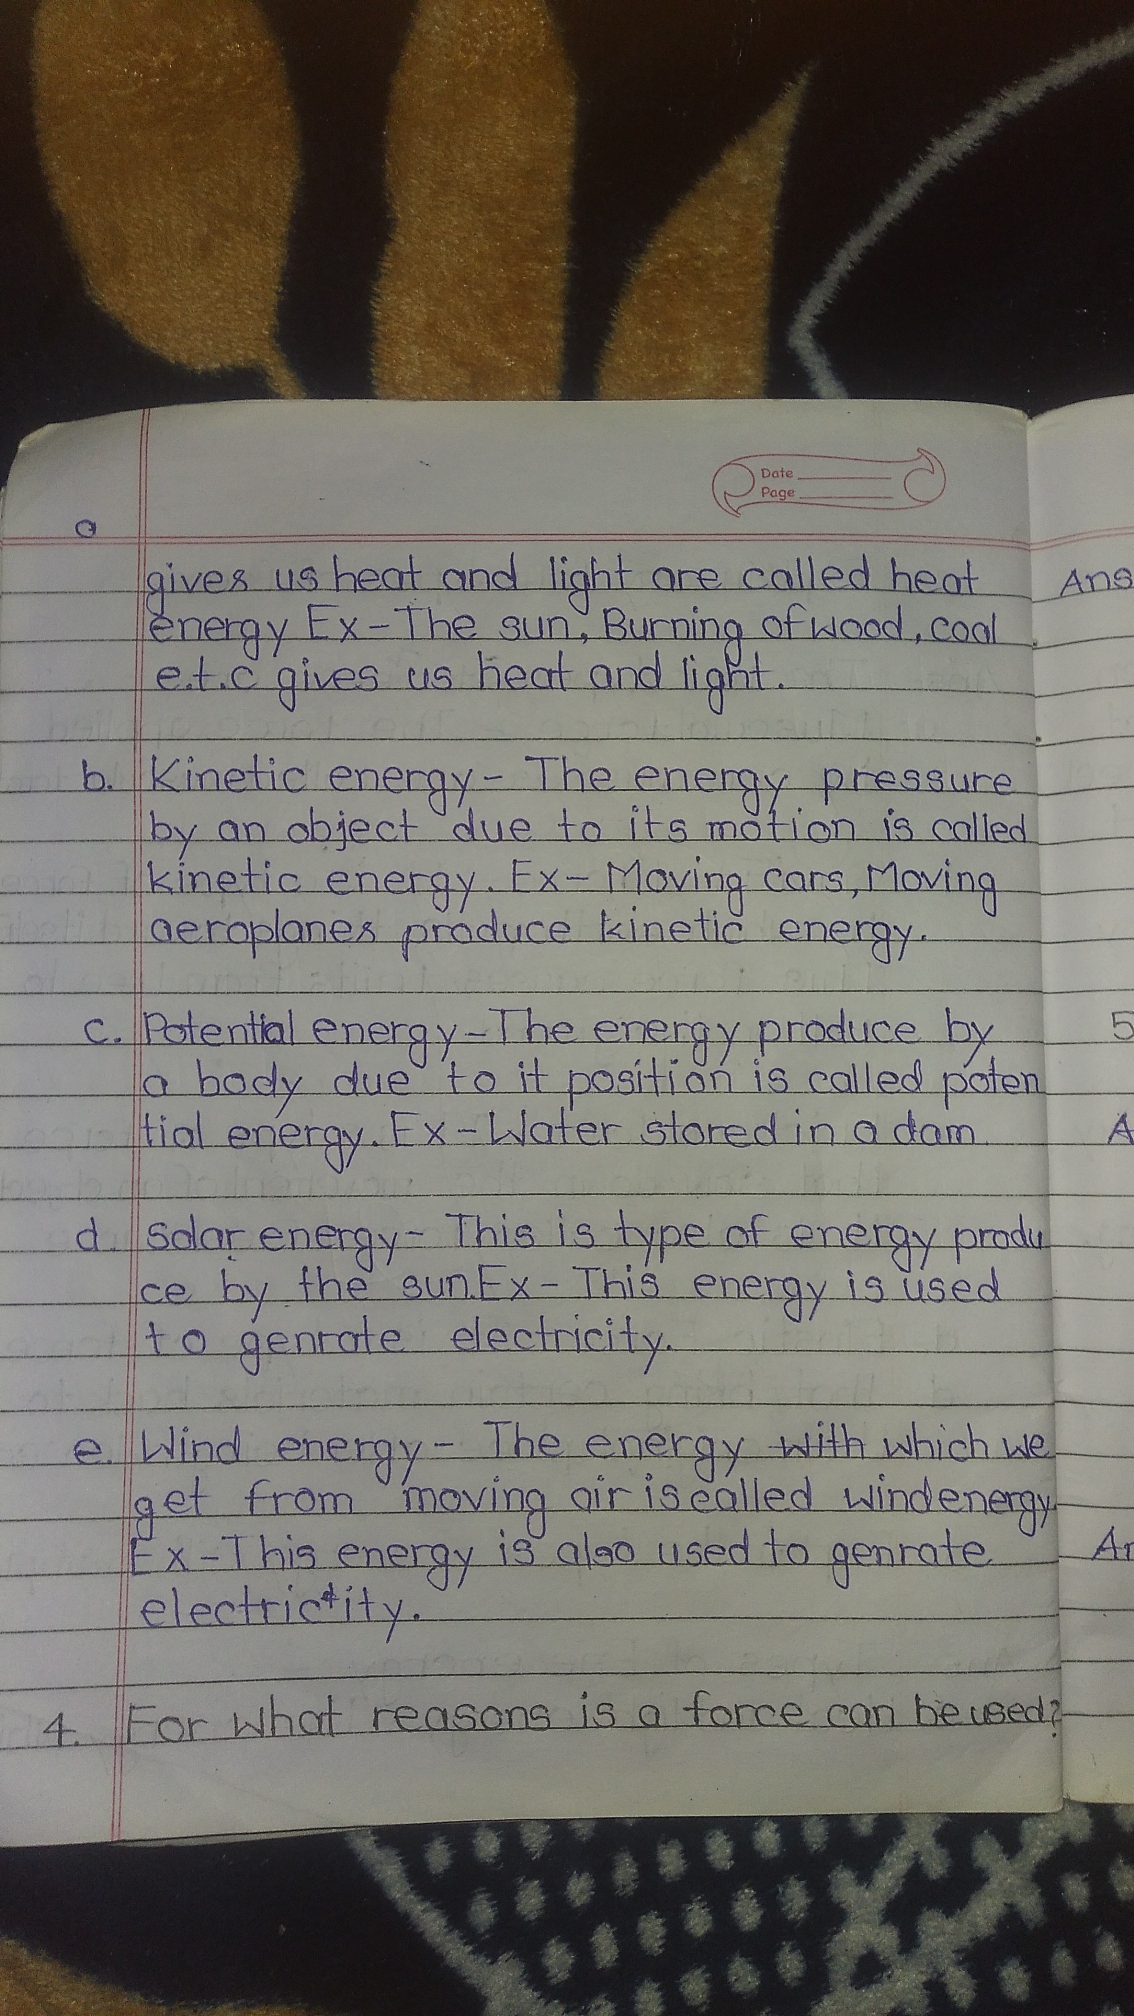 Date
Page
a
gives us heat and light are called heat
energy Ex-The sun, Burning of wood, coal
e.t.c gives us heat and light.
b. Kinetic energy- The energy pressure
by an object due to its motion is called
kinetic energy. Ex- Moving cars, Moving
aeroplanes produce kinetic energy.
c. Potential energy-The energy produce by
a body due to it position is called poten
tial energy. Ex-Water stored in a dam
d. Solar energy- This is type of energy produ
ce by the sun.Ex- This energy is used
to genrate electricity.
e. Wind energy- The energy with which we
get from moving air is called wind energy.
Ex-This energy is also used to genrate
electrictity.
4. For what reasons is a force can be used?
Ans
5
A